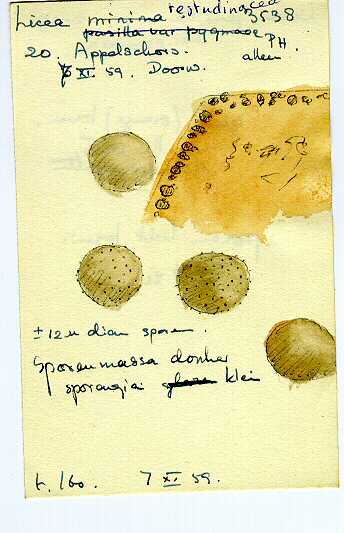 Licea minima testudinacea 3538
pusilla var pygmaea PH
20. Appelschors. allen
XI. 59. Doorw.
± 12 u diam sporen.
Sporenmassa donker
sporangia klein
t. 160. 7 XI 59.